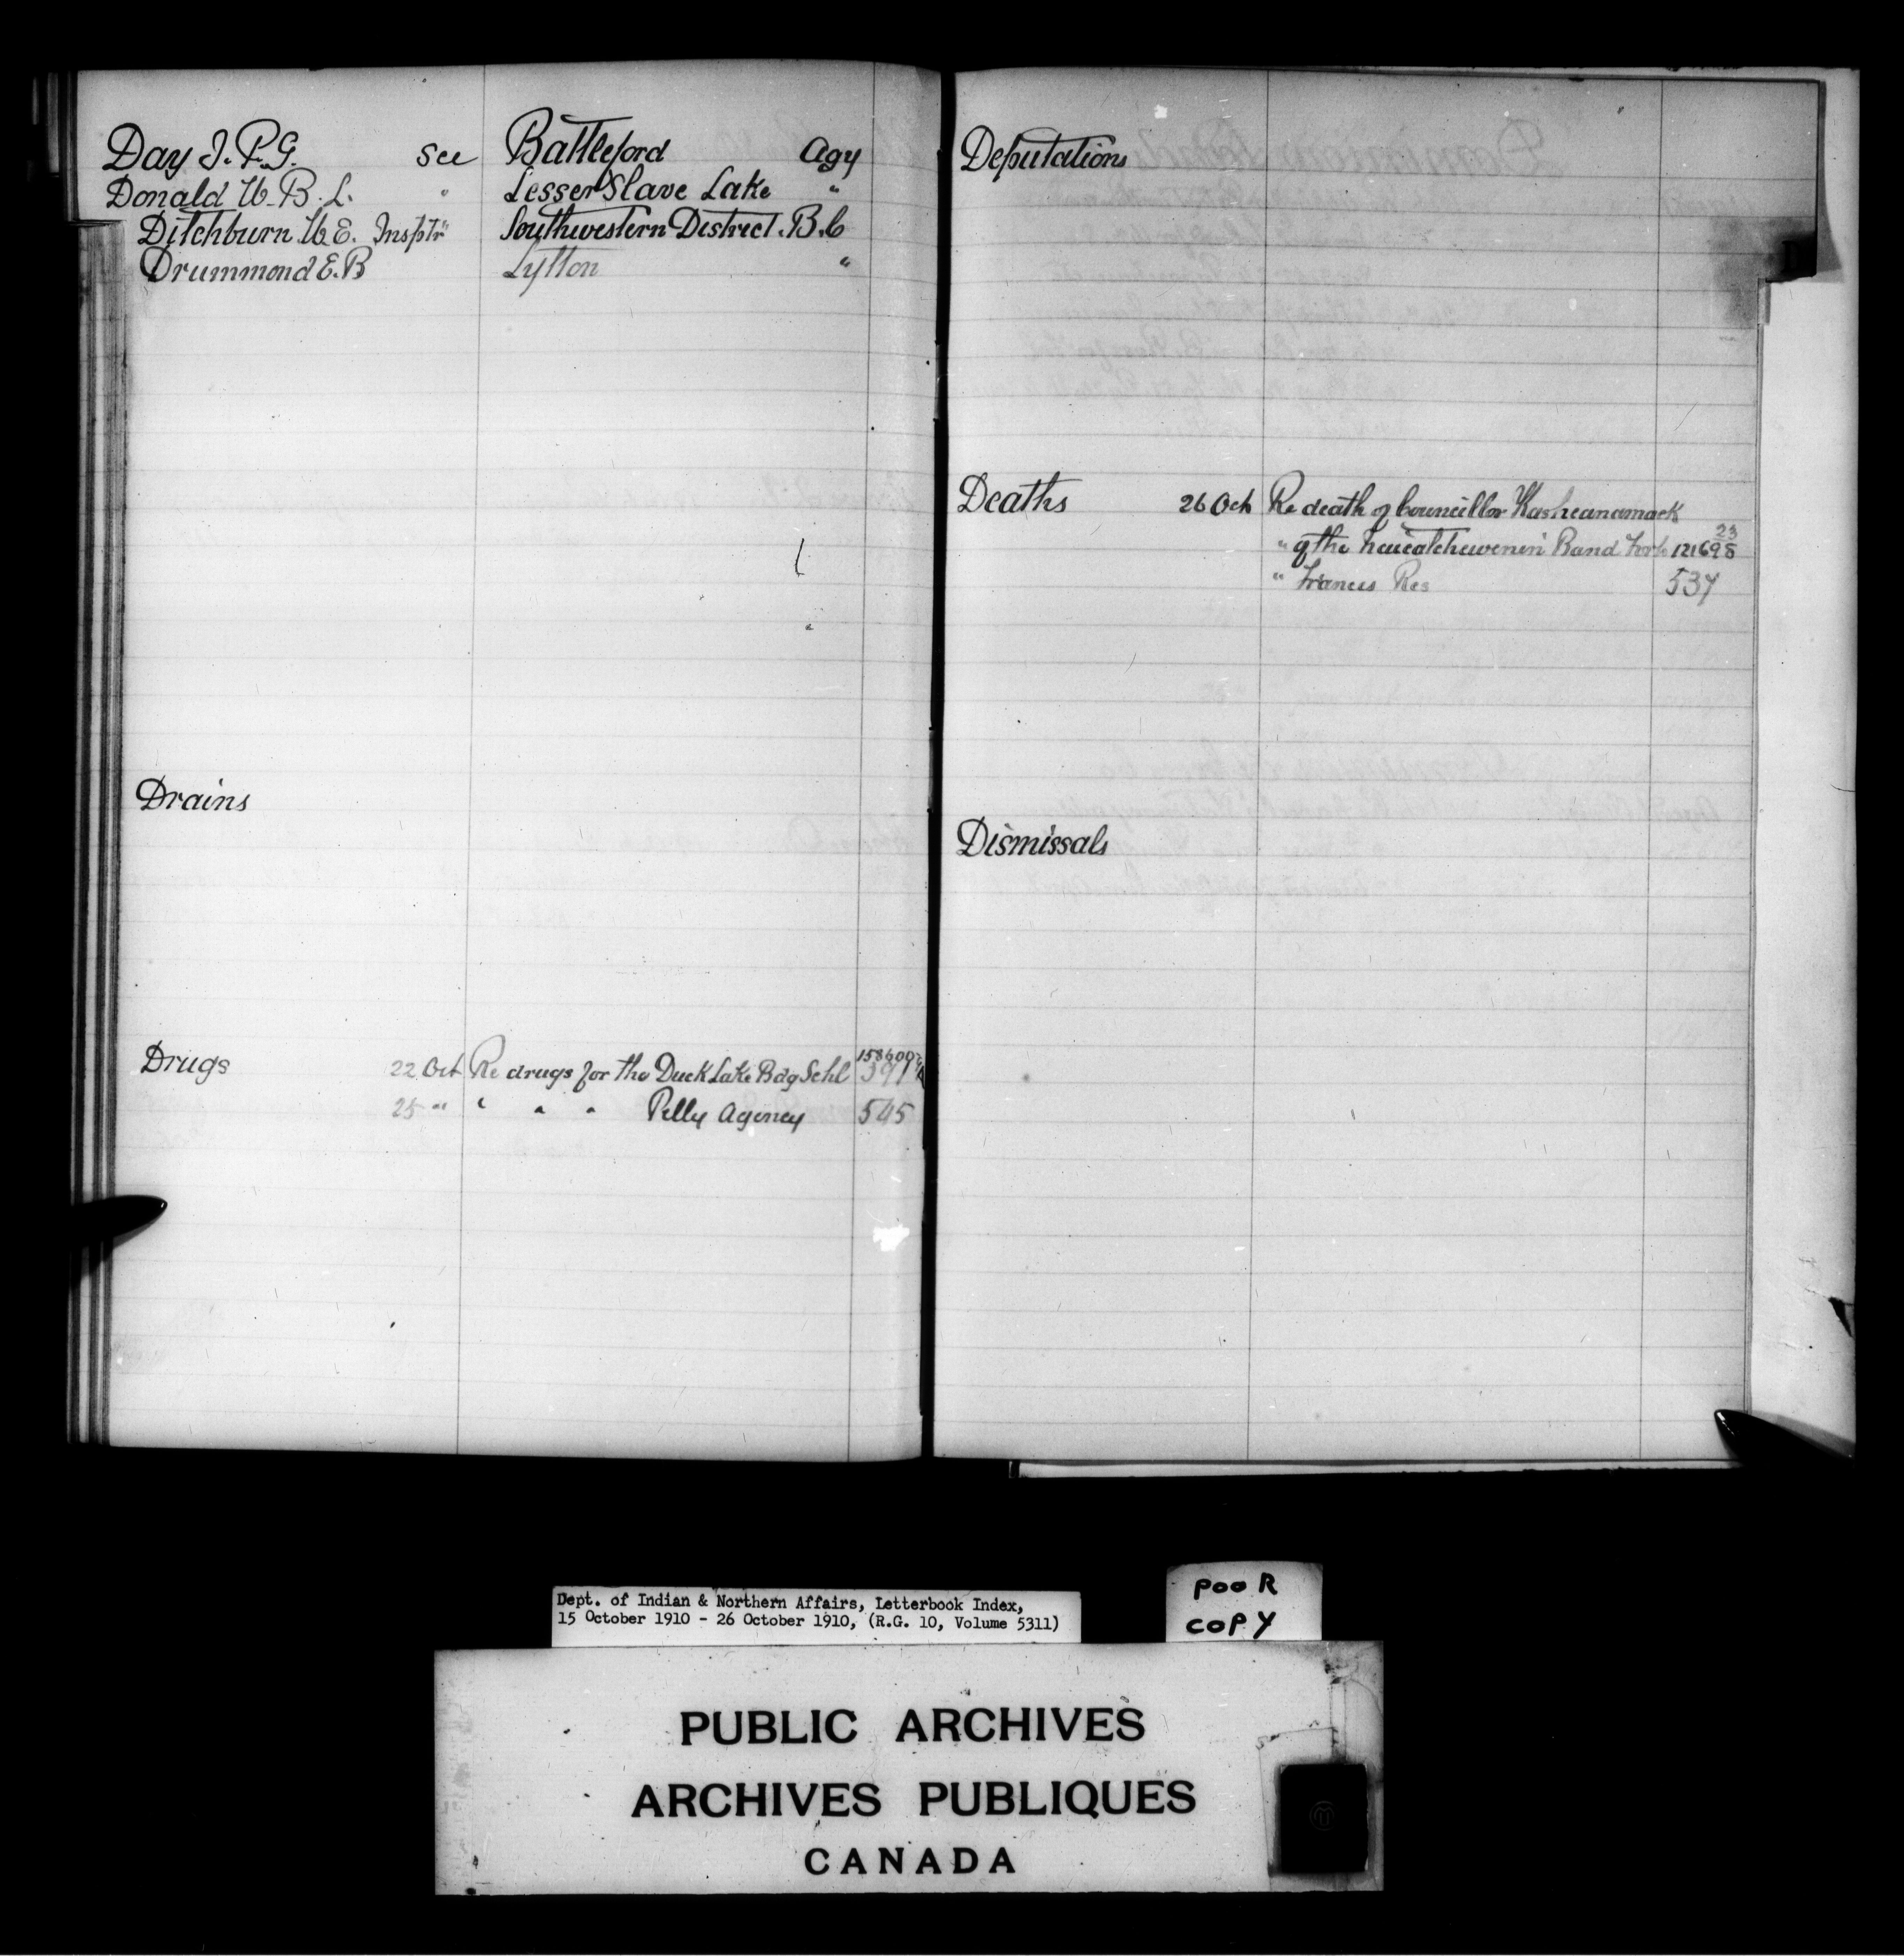 Day J. P. G. See Battleford Agy
Donald W. B. L. " Lesser Slave Lake "
Ditchburn W. E. Insptr " Southwestern District. B.C
Drummond E. B Lytton "
Drains
Drugs 22 Oct Re drugs for the Duck Lake Bdg Schl
25 " " " " Pelly Agency 545
Deputations
Deaths 26 Oct Re death of Councillor Kasheanamack
" of the Band Fort 121698 23
" Francis Res 537
Dismissals
Dept. of Indian & Northern Affairs, Letterbook Index,
15 October 1910 - 26 October 1910, (R.G. 10, Volume 5311)
POOR
COPY
PUBLIC ARCHIVES
ARCHIVES PUBLIQUES
CANADA